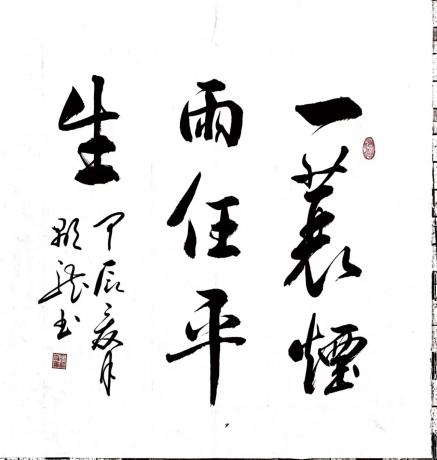 一蓑煙
雨任平
生
甲辰夏月